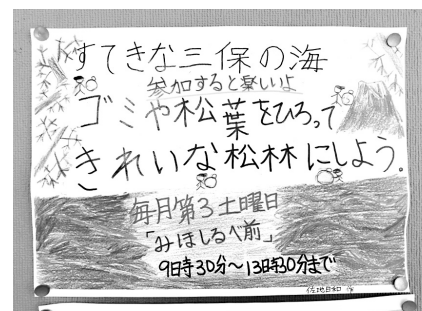 すてきな三保の海
参加すると楽しいよ
ゴミや松葉をひろって
きれいな松林にしよう。
毎月第3土曜日
「みほしるべ前」
9時30分～13時30分まで
作